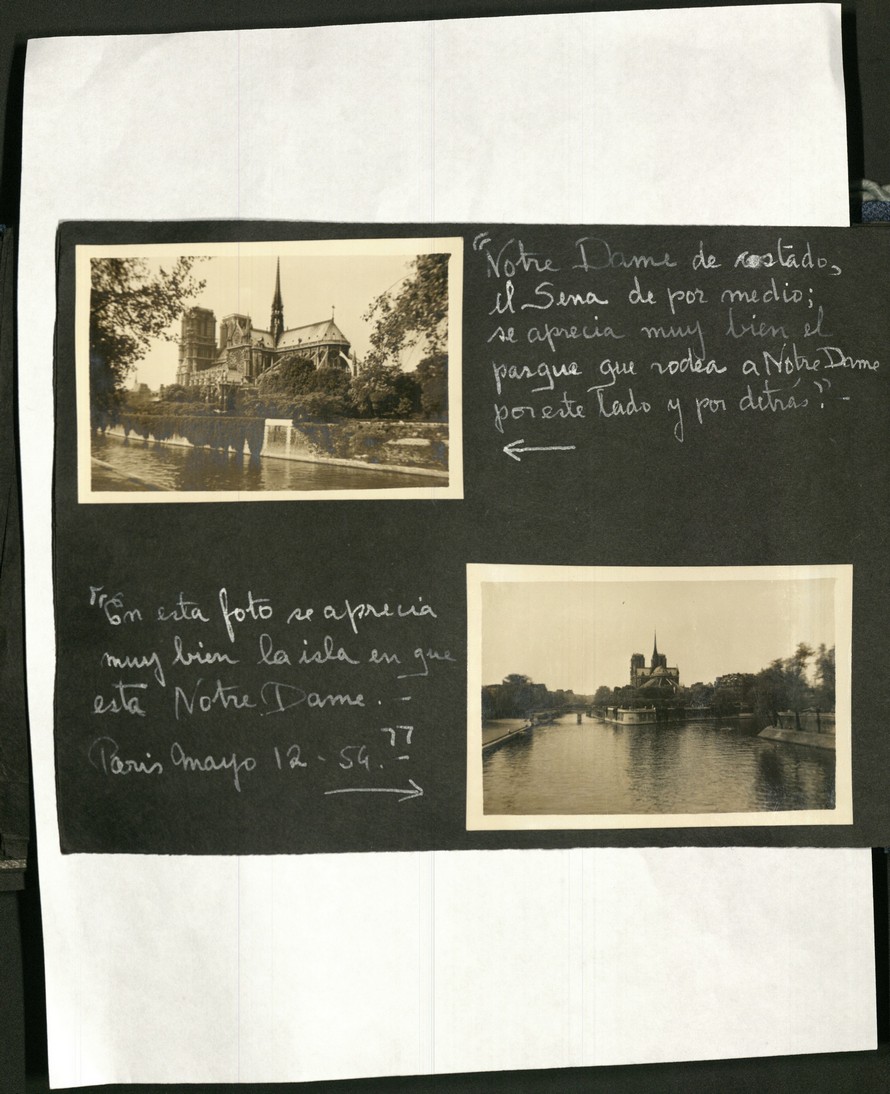 "Notre Dame de costado,
el Sena de por medio;
se aprecia muy bien el
parque que rodea a Notre Dame
por este lado y por detrás". -
"En esta foto se aprecia
muy bien la isla en que
está Notre Dame. -
Paris Mayo 12 - 54." -